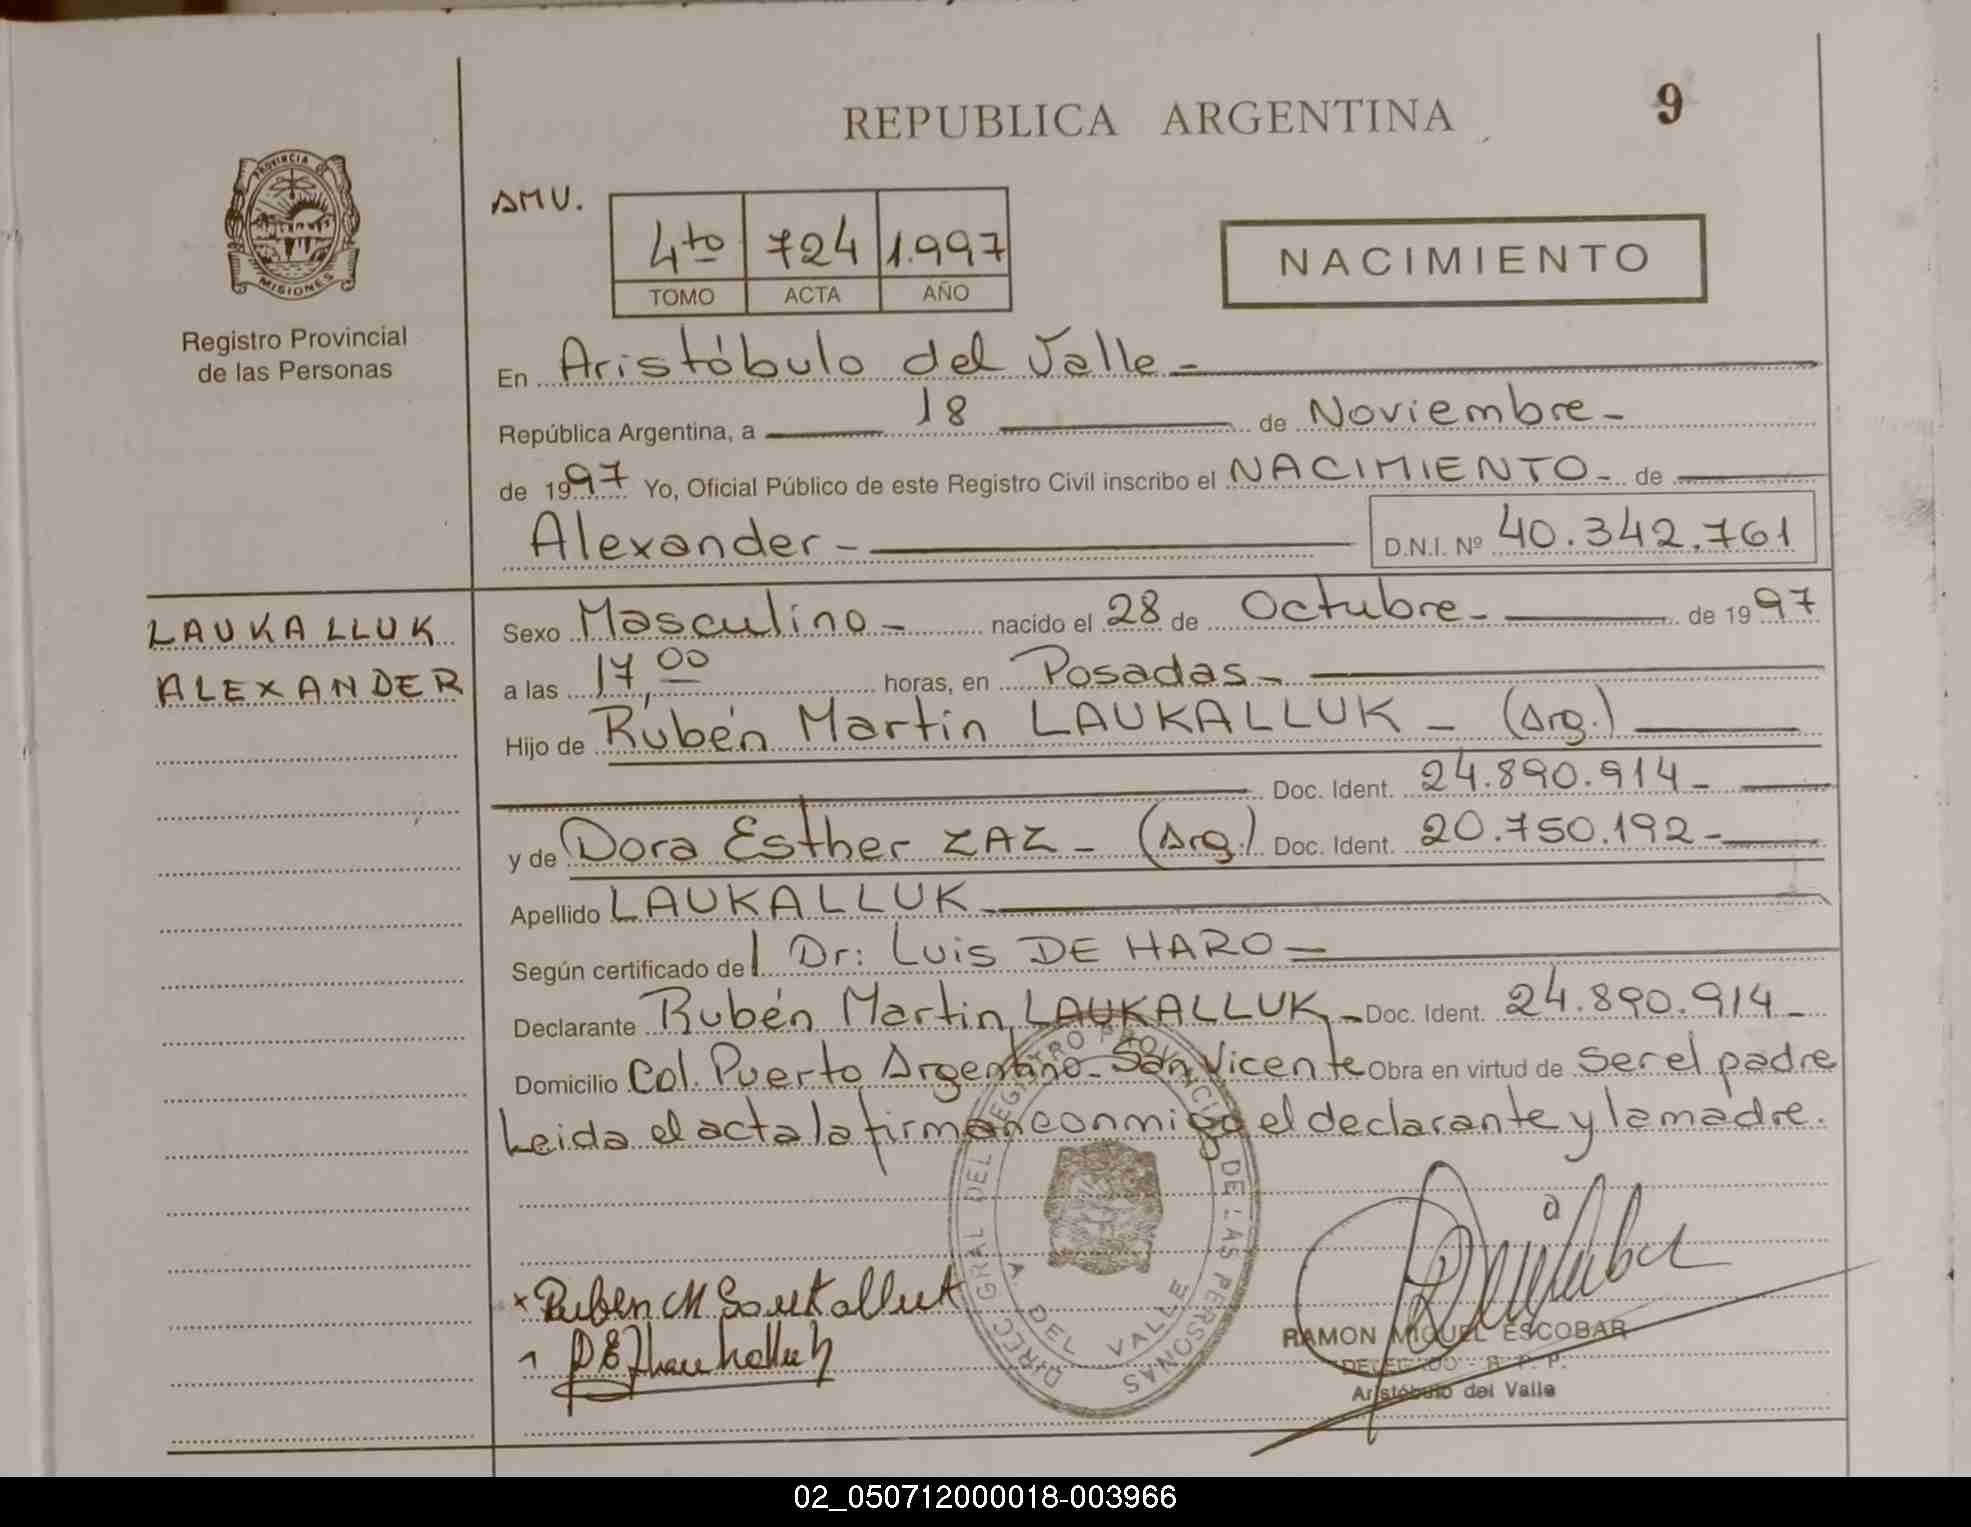 REPUBLICA ARGENTINA
9
PROVINCIA DE
MISIONES
Registro Provincial
de las Personas
AMV.
4to 724 1.997
TOMO ACTA AÑO
NACIMIENTO
En Aristóbulo del Valle -
República Argentina, a 18 de Noviembre -
de 1997 Yo, Oficial Público de este Registro Civil inscribo el NACIMIENTO - de
Alexander - D.N.I. Nº 40.342.761
LAUKALLUK
ALEXANDER
Sexo Masculino - nacido el 28 de Octubre - de 1997
a las 17,00 horas, en Posadas -
Hijo de Rubén Martin LAUKALLUK - (Arg.)
Doc. Ident. 24.890.914 -
y de Dora Esther ZAZ - (Arg.) Doc. Ident. 20.750.192 -
Apellido LAUKALLUK -
Según certificado del Dr: Luis DE HARO -
Declarante Rubén Martin LAUKALLUK - Doc. Ident. 24.890.914 -
Domicilio Col. Puerto Argentino - San Vicente Obra en virtud de ser el padre
Leida el acta la firman conmigo el declarante y la madre.
DIREC. GRAL DEL REGISTRO PROVINCIAL DE LAS PERSONAS
A. DEL VALLE
Ruben M Laukalluk
RAMON MIGUEL ESCOBAR
DELEGADO - R. P. P.
Aristóbulo del Valle
02_050712000018-003966